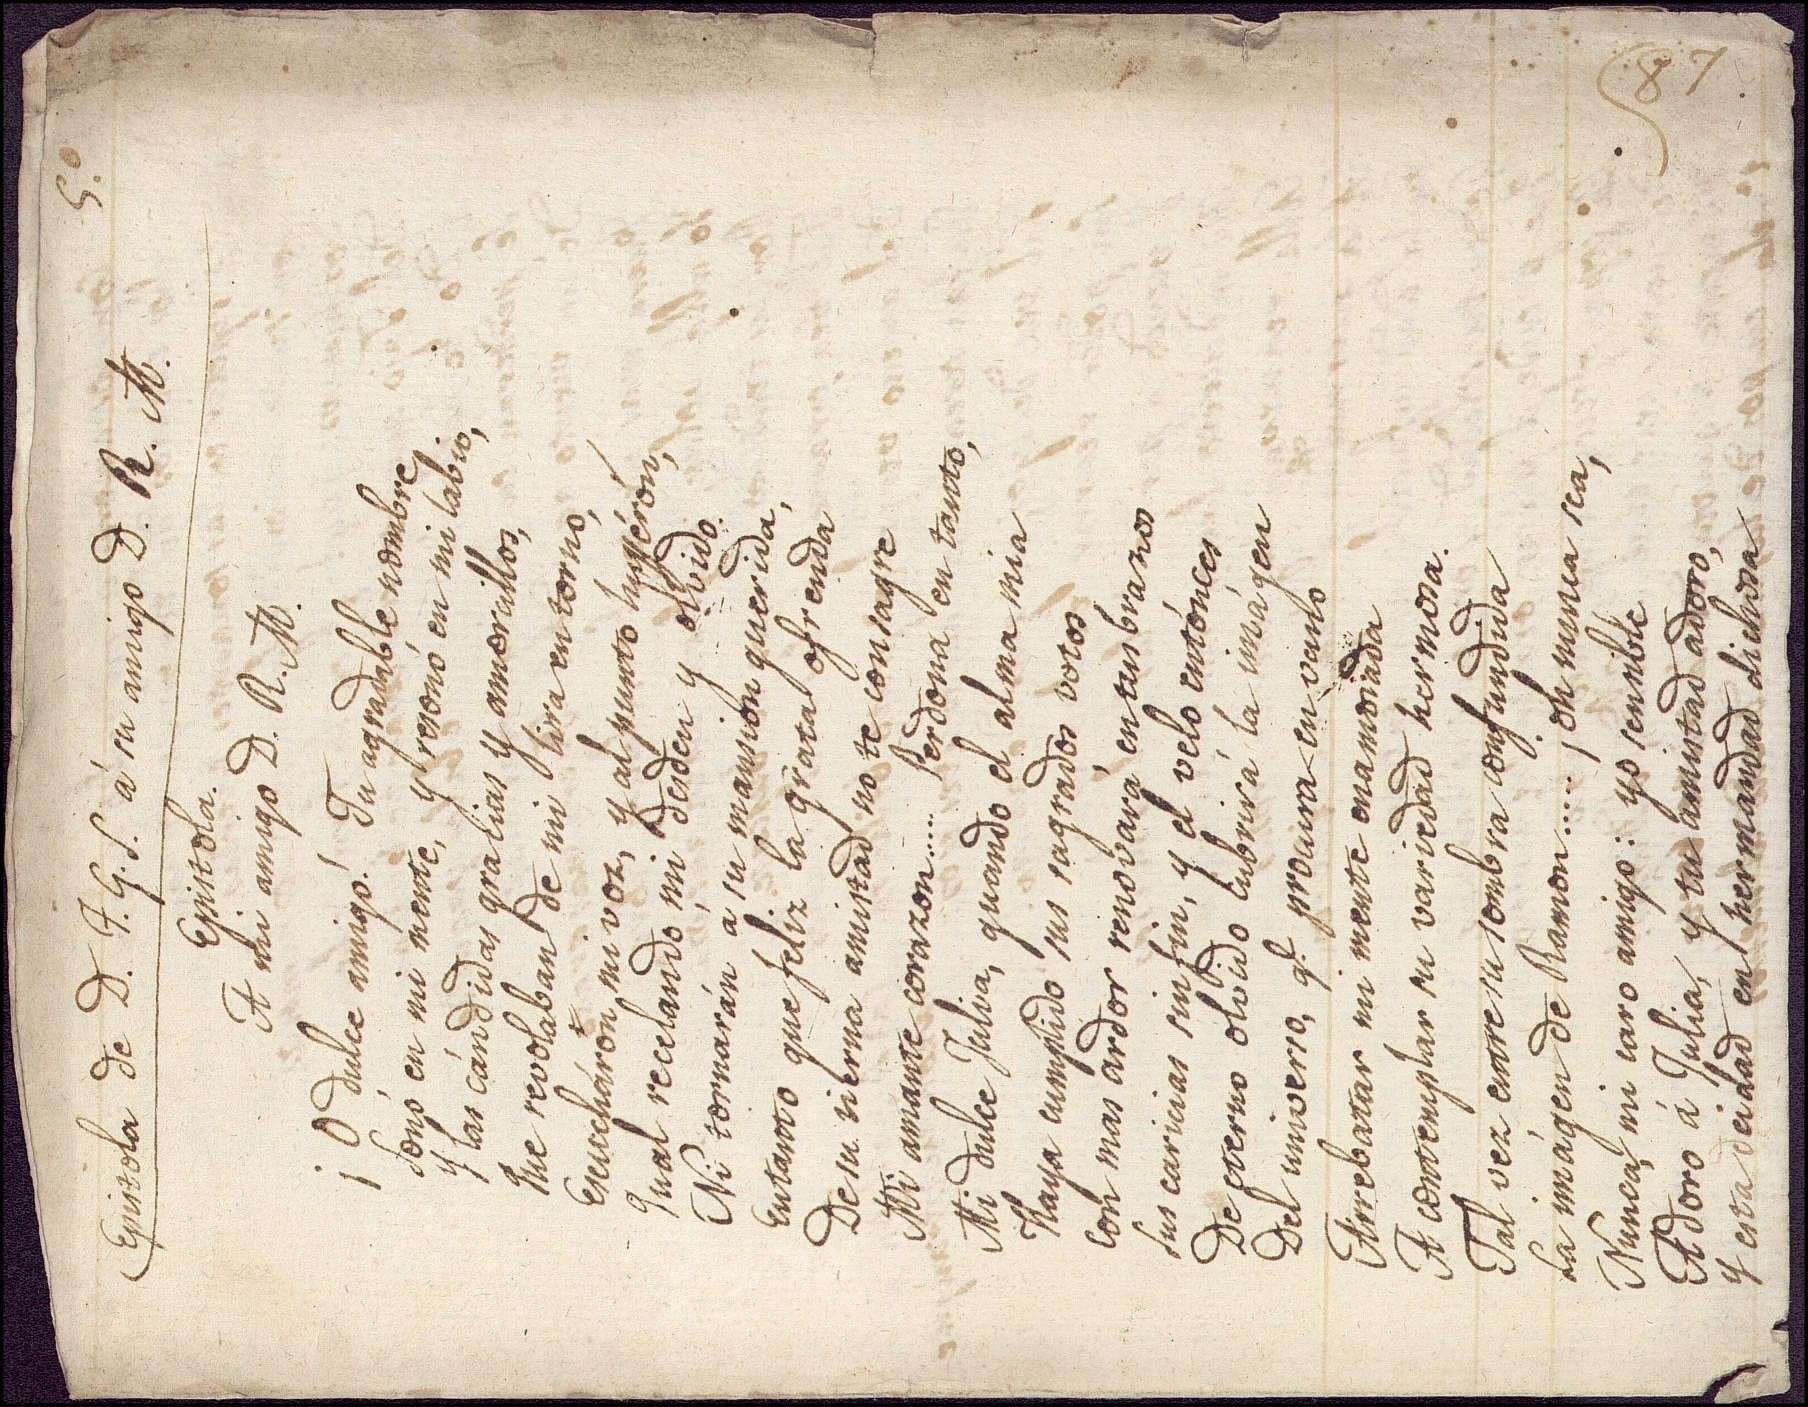 5.º
Epistola de D. F. G. S. á su amigo D. R. M.
Epistola.
A mi amigo D. R. M.
¡O dulce amigo! Tu agradable nombre
Sonó en mi mente, y resonó en mi labio,
y las cándidas gracias y amorcillos,
Que revolaban de mi lira en torno,
Escucháron mi voz, y al punto huyéron,
Qual recelando mi desden y olvido.
Ni tornarán á su mansion querida,
Entanto que feliz la grata ofrenda
De su tierna amistad no te consagre
Mi amante corazon..... Perdona en tanto,
Mi dulce Julia, quando el alma mia
Haya cumplido sus sagrados votos
Con mas ardor renovará en tus brazos
Sus caricias sin fin, y el velo entónces
De eterno olvido cubrirá la imágen
Del universo, q.e procura en vano
Arrebatar mi mente enamorada
A contemplar su variedad hermosa.
Tal vez entre su sombra confundida
La imágen de Ramon..... ¡oh nunca sea,
Nunca, mi caro amigo: yo sensible
Adoro á Julia, y tu amistad adoro,
y esta deidad en hermandad dichosa
87